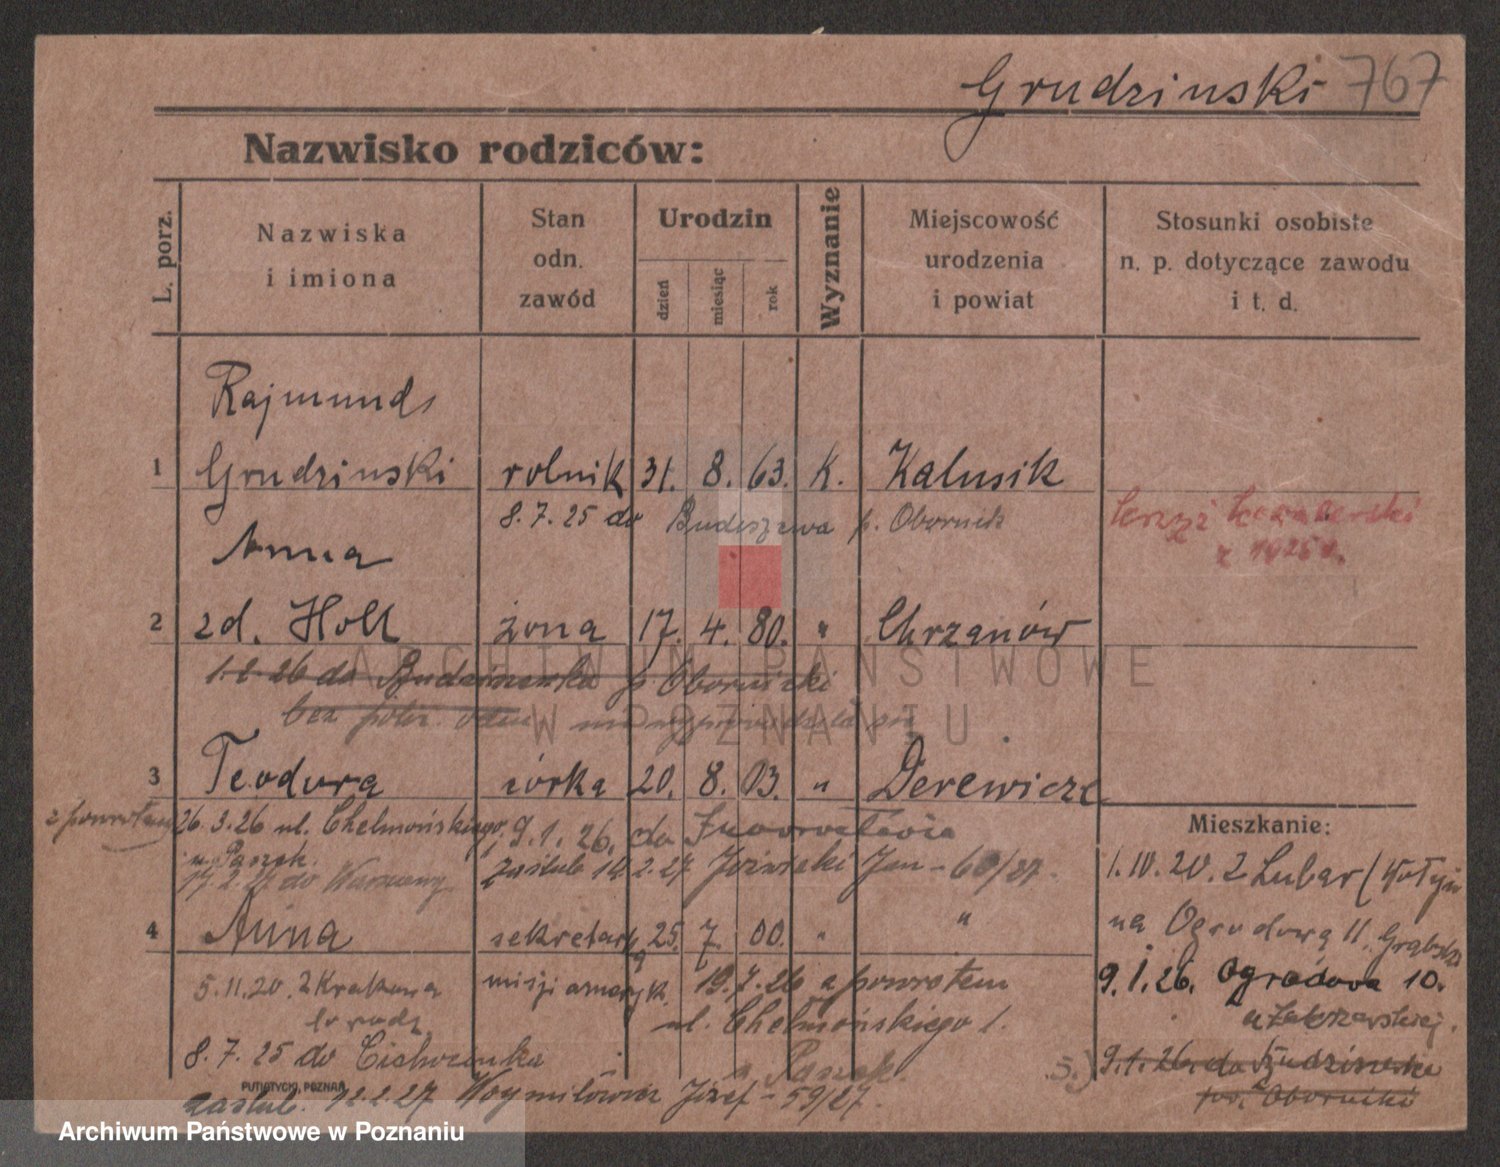 Grudzinski 767
Nazwisko rodziców:
L. porz.
Nazwiska
i imiona
Stan
odn.
zawód
Urodzin
dzień
miesiąc
rok
Wyznanie
Miejscowość
urodzenia
i powiat
Stosunki osobiste
n. p. dotyczące zawodu
i t. d.
Rajmund
1 Grudzinski rolnik 31. 8. 63. K. Kalusik
8. 7. 25 do p. Obornik
Anna
2 zd. Holl żona 17. 4. 80. " Chrzanów
1. 2. 26 do p Obornicki
ARCHIWUM PAŃSTWOWE
W POZNANIU
3 Teodora córka 20. 8. 03. " Derewicze
Mieszkanie:
z powrotem 26. 3. 26 ul. Chełmońskiego, 9. 1. 26. do Inowrocławia
u Paszek.
17. 2. 27 do Warszawy zaślub. 14. 2. 27 Jan - 60/27.
1. IV. 20. z Lubar (Wołyń
4 Anna sekretarka 25. 7. 00. " "
na Ogrodową 11.
5. 11. 20. z Krakowa misji ameryk. 19. 7. 26 z powrotem
9. 1. 26. Ogrodowa 10.
ul. Chełmońskiego 1.
u Paszek.
8. 7. 25 do
9. 1. 26. do
pow. Obornicki
PUTIATYCKI, POZNAŃ
zaślub. 12. 2. 27 Józef - 59/27.
Archiwum Państwowe w Poznaniu